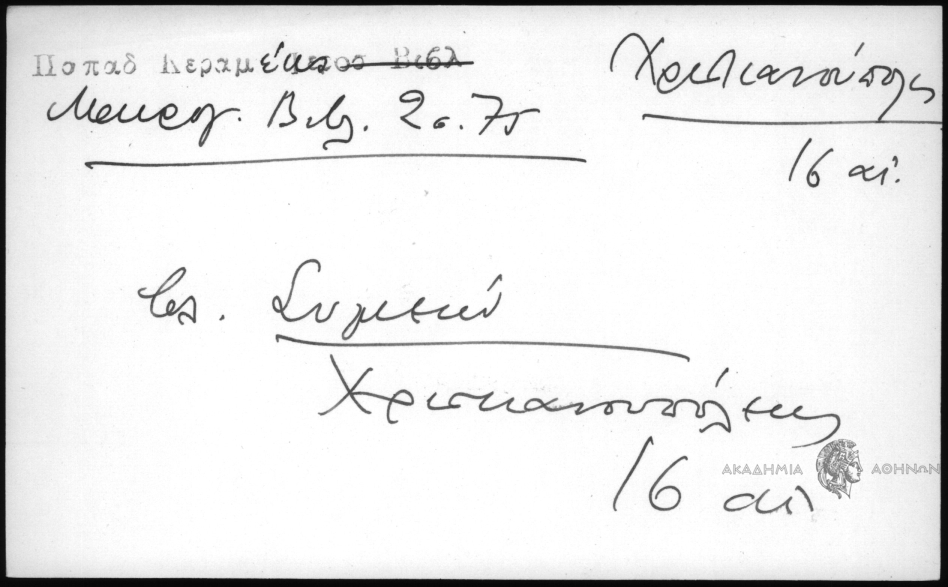 Παπαδ Κεραμέως Βιβλ
Μαυρογ. Βιβ. 2σ. 75
Χριστιανούπολις
16 αἰ.
βλ. Συμεών
Χριστιανουπόλεως
16 αἰ
ΑΚΑΔΗΜΙΑ ΑΘΗΝΩΝ